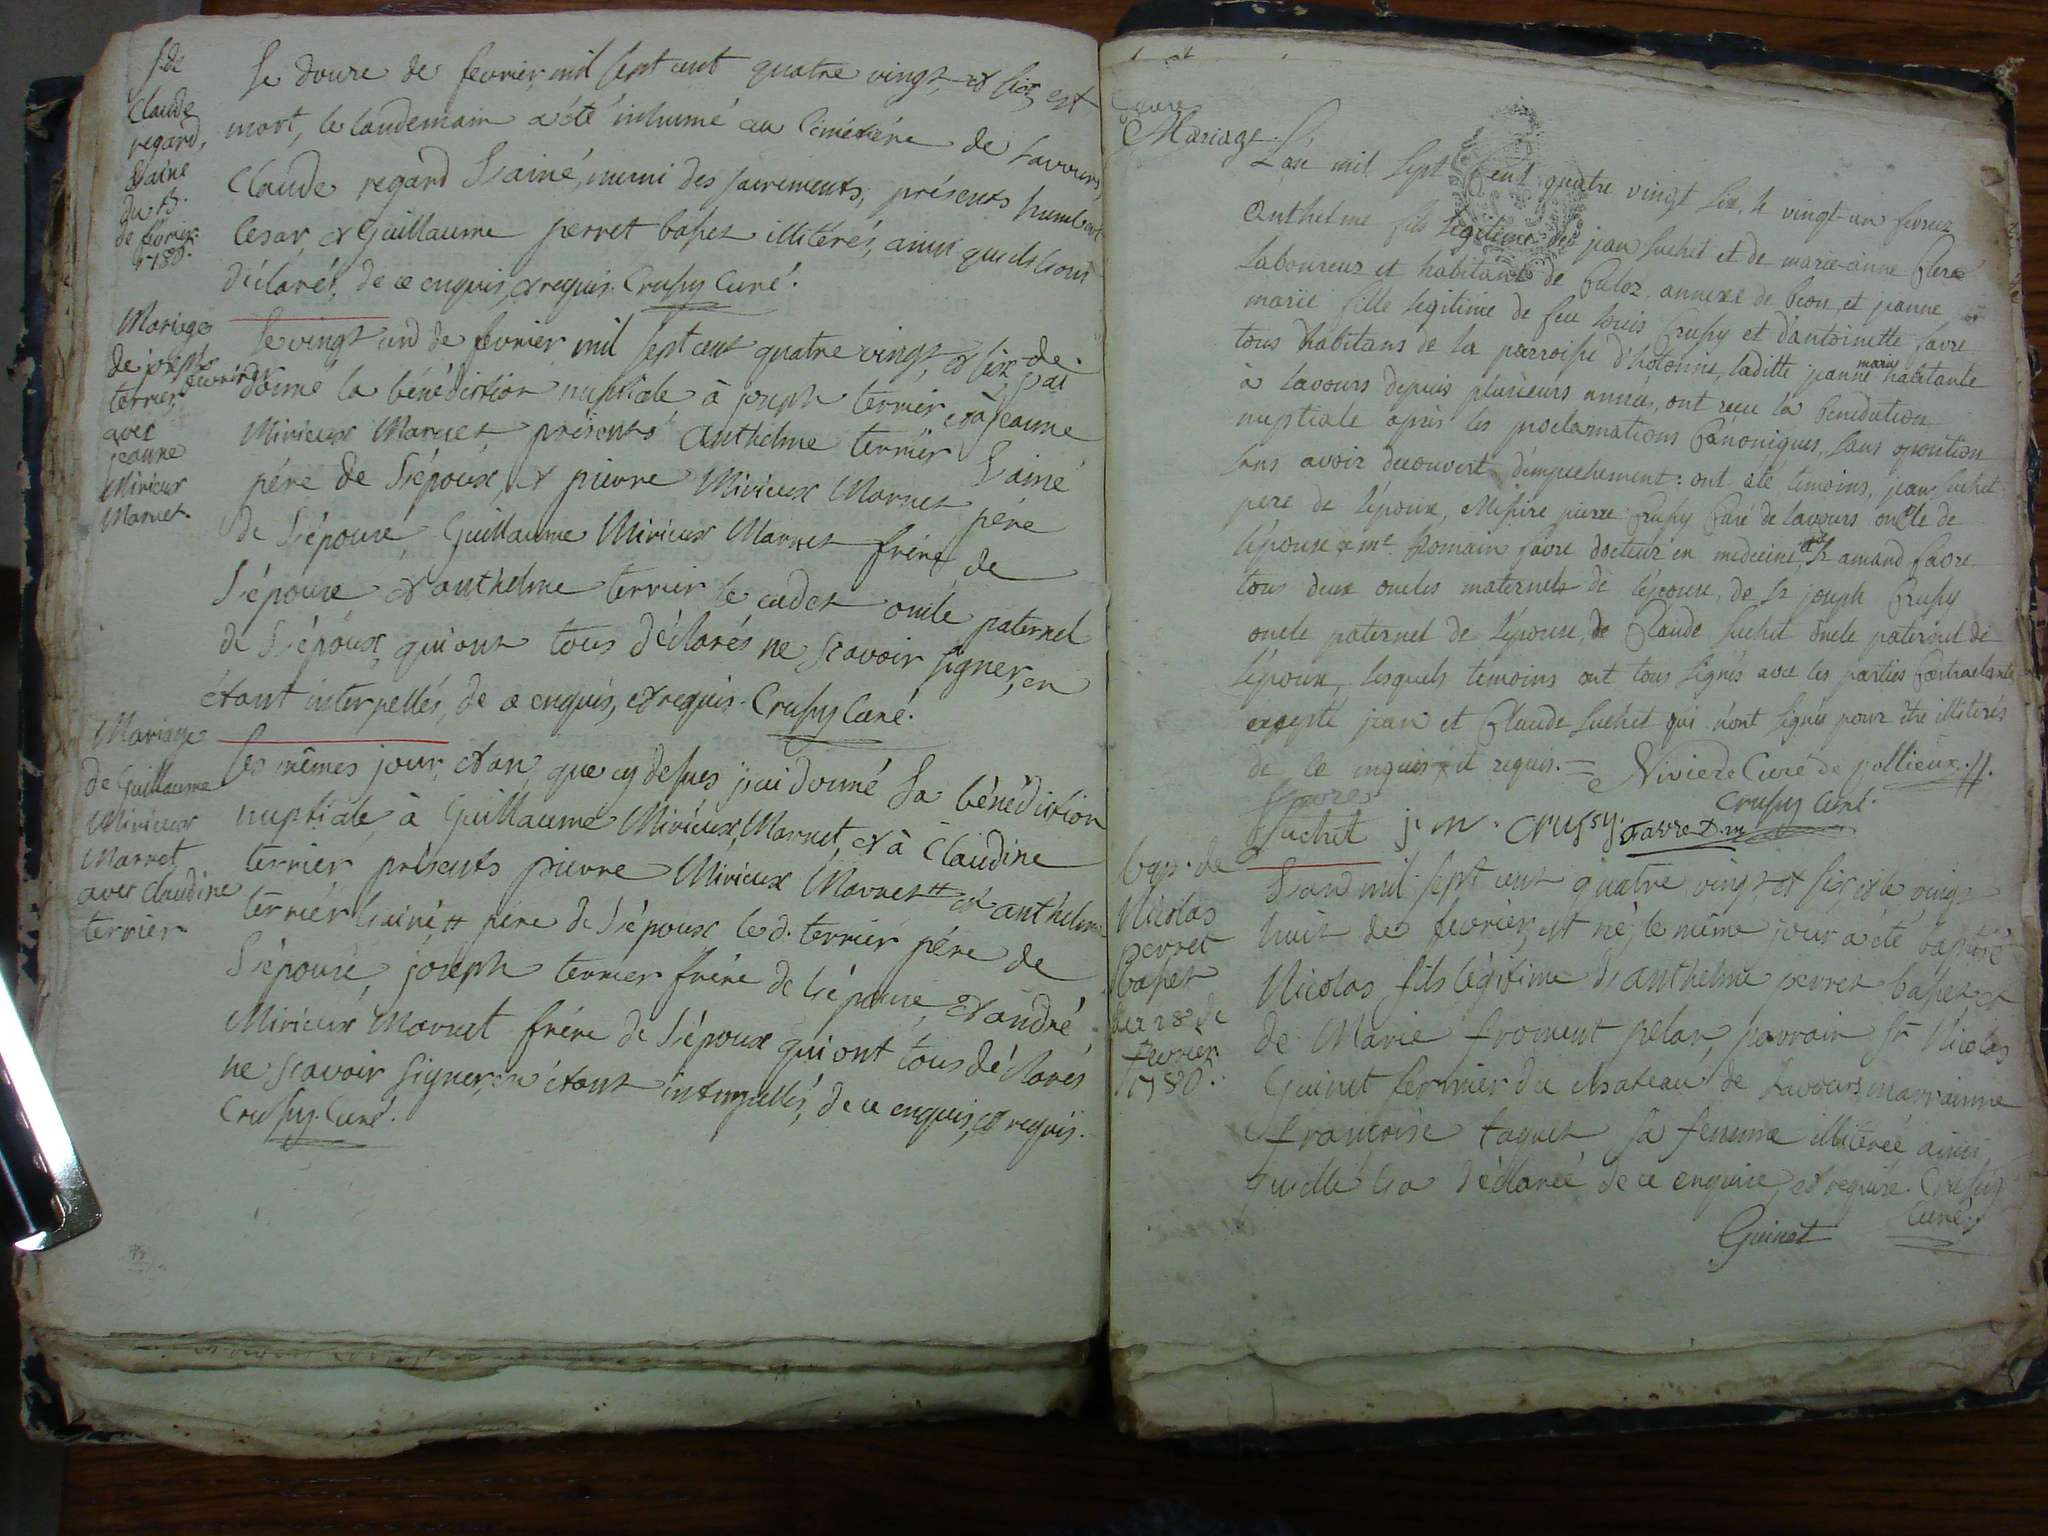 S. de
Claude
regard,
L'ainé
du 13.
de fevrier
1786.
Le douze de fevrier, mil sept cent quatre vingt, et six, est
mort, le landemain a été inhumé au Cimetiére de Lavours,
Claude regard L'ainé, muni des sacrements, présents humbert
Cesar, et Guillaume perret bapet illitérés, ainsi quils l'ont
déclarés, de ce enquis, et requis. Crussy Curé.
Mariage
de joseph
terrier
avec
jeanne
Mirieux
Marnet.
Le vingt un de fevrier mil sept cent quatre vingt, et six, j'ai
donné la bénédiction nuptiale à joseph terrier, et à jeanne
Mirieux Marnet présents anthelme terrier L'ainé
pére de L'époux, et pierre Mirieux Marnet pére
de L'épouse, Guillaume Mirieux Marnet frére de
L'épouse et anthelme terrier le cadet oncle paternel
de L'époux, qui ont tous déclarés ne scavoir signer, en
étant interpellés, de ce enquis, et requis. Crussy Curé.
Mariage
de Guillaume
Mirieux
Marnet
avec Claudine
terrier
Les mêmes jour, et an que cy dessus j'ai donné La bénédiction
nuptiale, à Guillaume Mirieux Marnet, et à Claudine
terrier présents pierre Mirieux Marnet et anthelme
terrier L'ainé pére de L'époux le d. terrier pére de
L'épouse, joseph terrier frére de L'épouse, et andré
Mirieux Marnet frére de L'époux qui ont tous déclarés
ne scavoir signer, en étant interpellés, de ce enquis, et requis.
Crussy Curé.
Mariage.
L'an mil sept cent quatre vingt six, le vingt-un fevrier
Anthelme fils legitime de jean Suchet et de marie-anne Clerc
Laboureur et habitant de Culoz, annexe de Beon, et jeanne
marie fille legitime de feu louis Crussy et d'antoinette favre
tous habitans de la parroisse d'hotonne, laditte jeanne marie habitante
à lavours depuis plusieurs années, ont reçu la Benediction
nuptiale après les proclamations Canoniques, sans oposition
sans avoir decouvert d'empechement: ont eté temoins, jean Suchet
pere de l'époux, Messire pierre Crussy Curé de lavours oncle de
l'épouse et me. Romain favre docteur en medecine, Sr amand favre
tous deux oncles maternels de l'épouse, de Sr joseph Crussy
oncle paternel de l'épouse, de Claude Suchet oncle paternel de
l'époux, lesquels temoins ont tous signés avec les parties Contractantes
excepté jean et Claude Suchet qui n'ont signés pour être illiterés
de ce enquis et requis. = Niviede Curé de pollieux.
favre
Suchet j. m. Crussy. Favre D. m Crussy Curé.
bap. de
Nicolas
perret
bapet
du 28 de
fevrier
1786.
L'an mil sept cent quatre vingt, et six, et le vingt
huit de fevrier, est né, le même jour a été baptisé
Nicolas fils légitime d'anthelme perret bapet et
de Marie froment pelar, parrain Sr Nicolas
Guinet fermier du chateau de Lavours, marrainne
francoise taquet sa femme illiterée ainsi
quelle l'a déclarée de ce enquise, et requise. Crussy
Curé.
Guinet